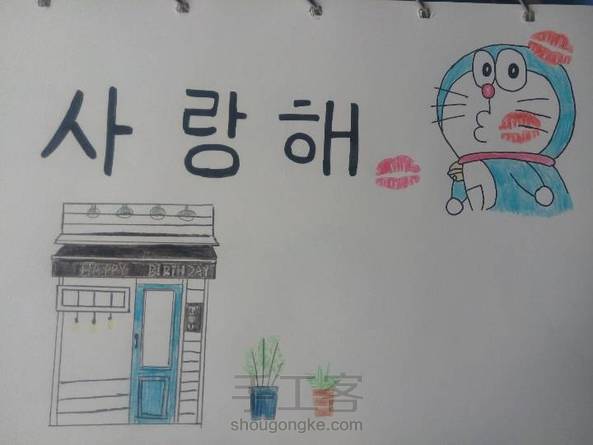 사랑해
HAPPY BIRTHDAY
手工客
shougongke.com